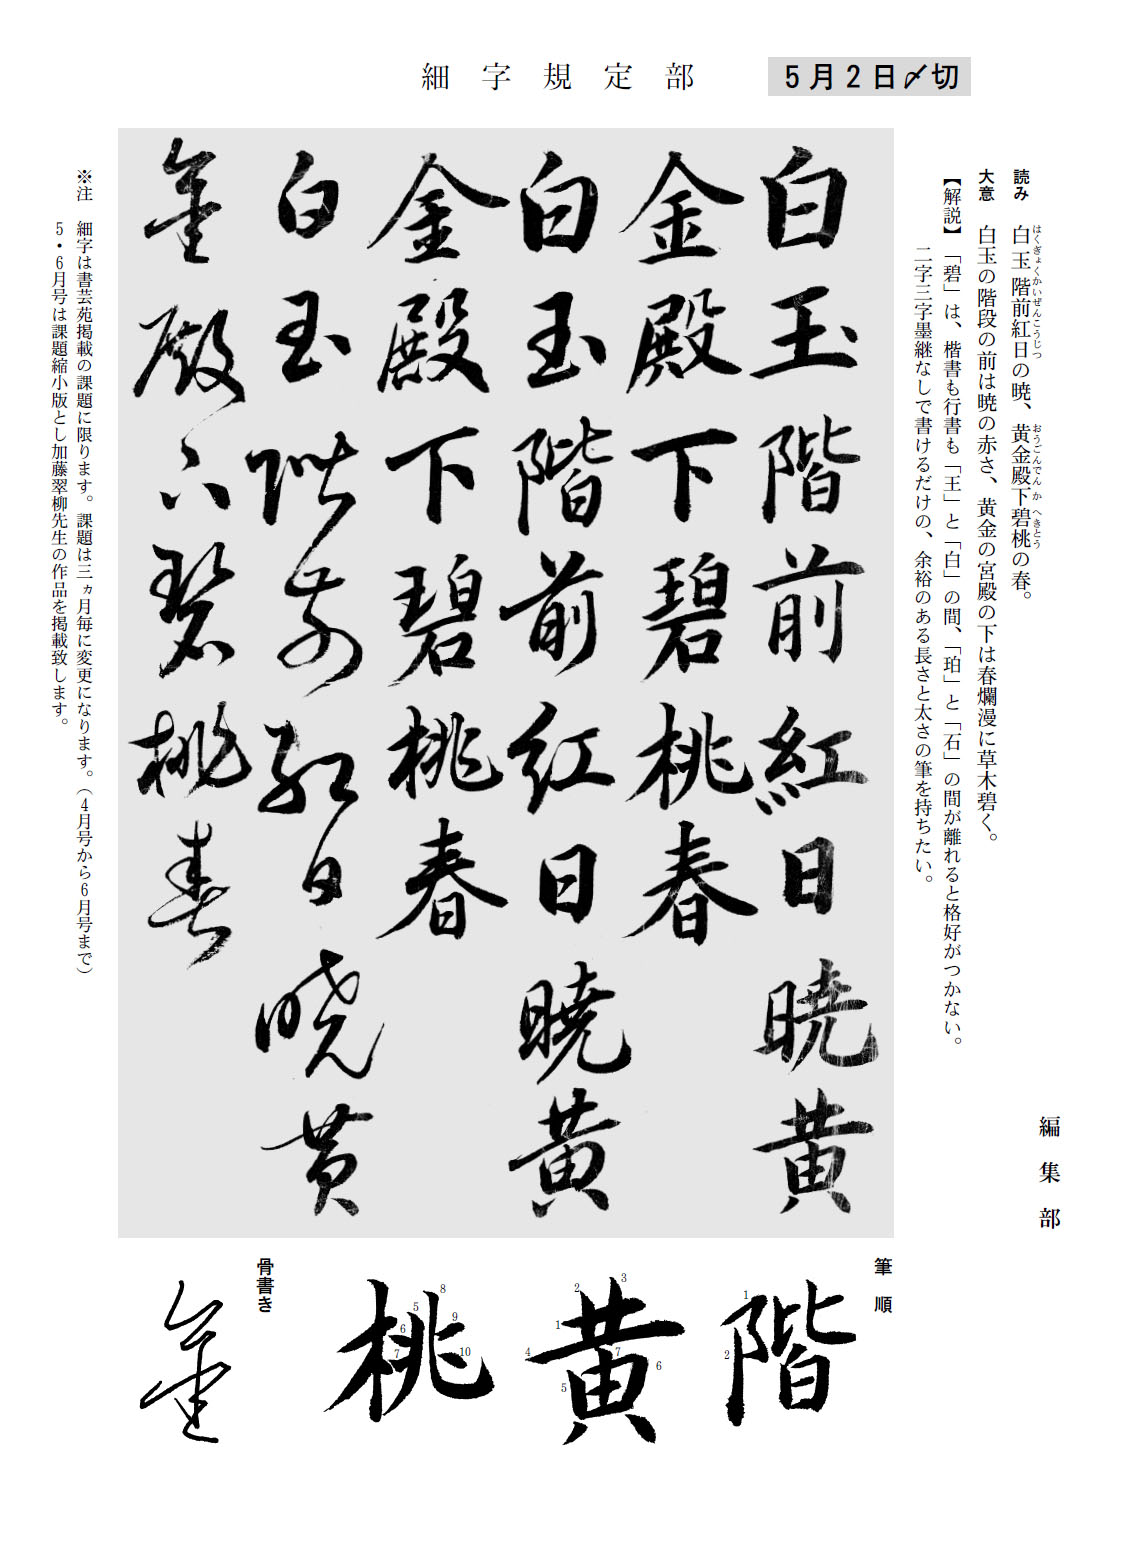 細字規定部
5月2日〆切
読み　白玉階前紅日の暁、黄金殿下碧桃の春。
はくぎょくかいぜんこうじつ
おうごんでんかへきとう
大意　白玉の階段の前は暁の赤さ、黄金の宮殿の下は春爛漫に草木碧く。
【解説】「碧」は、楷書も行書も「王」と「白」の間、「珀」と「石」の間が離れると格好がつかない。
二字三字墨継なしで書けるだけの、余裕のある長さと太さの筆を持ちたい。
編集部
白玉階前紅日暁黄
金殿下碧桃春
白玉階前紅日暁黄
金殿下碧桃春
白玉階前紅日暁黄
金殿下碧桃春
※注　細字は書芸苑掲載の課題に限ります。課題は三ヵ月毎に変更になります。（4月号から6月号まで）
5・6月号は課題縮小版とし加藤翠柳先生の作品を掲載致します。
筆順
階
1
2
黄
1
2
3
4
5
6
7
桃
5
6
7
8
9
10
骨書き
金